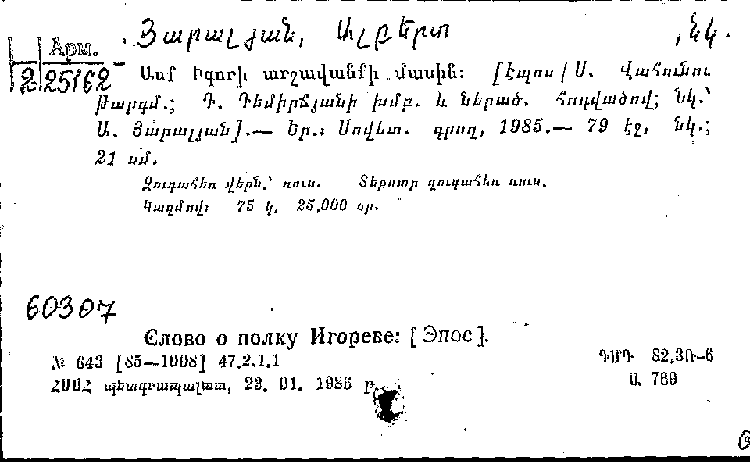 Յարալյան, Ալբերտ , նկ.
Арм.
2 25162
Ասք Իգորի արշավանքի մասին: [Էպոս / Ա. Վահունու
թարգմ.; Դ. Դեմիրճյանի խմբ. և ներած. հոդվածով; Նկ.՝
Ա. Յարալյան].— Եր.: Սովետ. գրող, 1985.— 79 էջ, նկ.;
21 սմ.
Զուգահեռ վերն.՝ ռուս. Տեքստը զուգահեռ ռուս.
Կազմով: 75 կ. 25.000 օր.
60307
Слово о полку Игореве: [Эпос].
№ 643 [85—1008] 47.2.1.1 ԴՄԴ 82.3Ռ—6
ՀՍՍՀ պետգրապալատ, 29. 01. 1986 թ. Ա 769